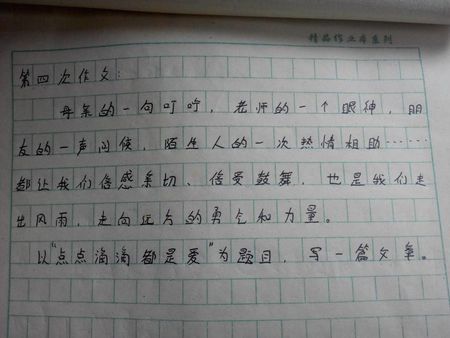 精品作业本系列
第四次作文：
母亲的一句叮咛，老师的一个眼神，朋
友的一声问候，陌生人的一次热情相助……
都让我们倍感亲切、倍受鼓舞，也是我们走
出风雨，走向远方的勇气和力量。
以“点点滴滴都是爱”为题目，写一篇文章。